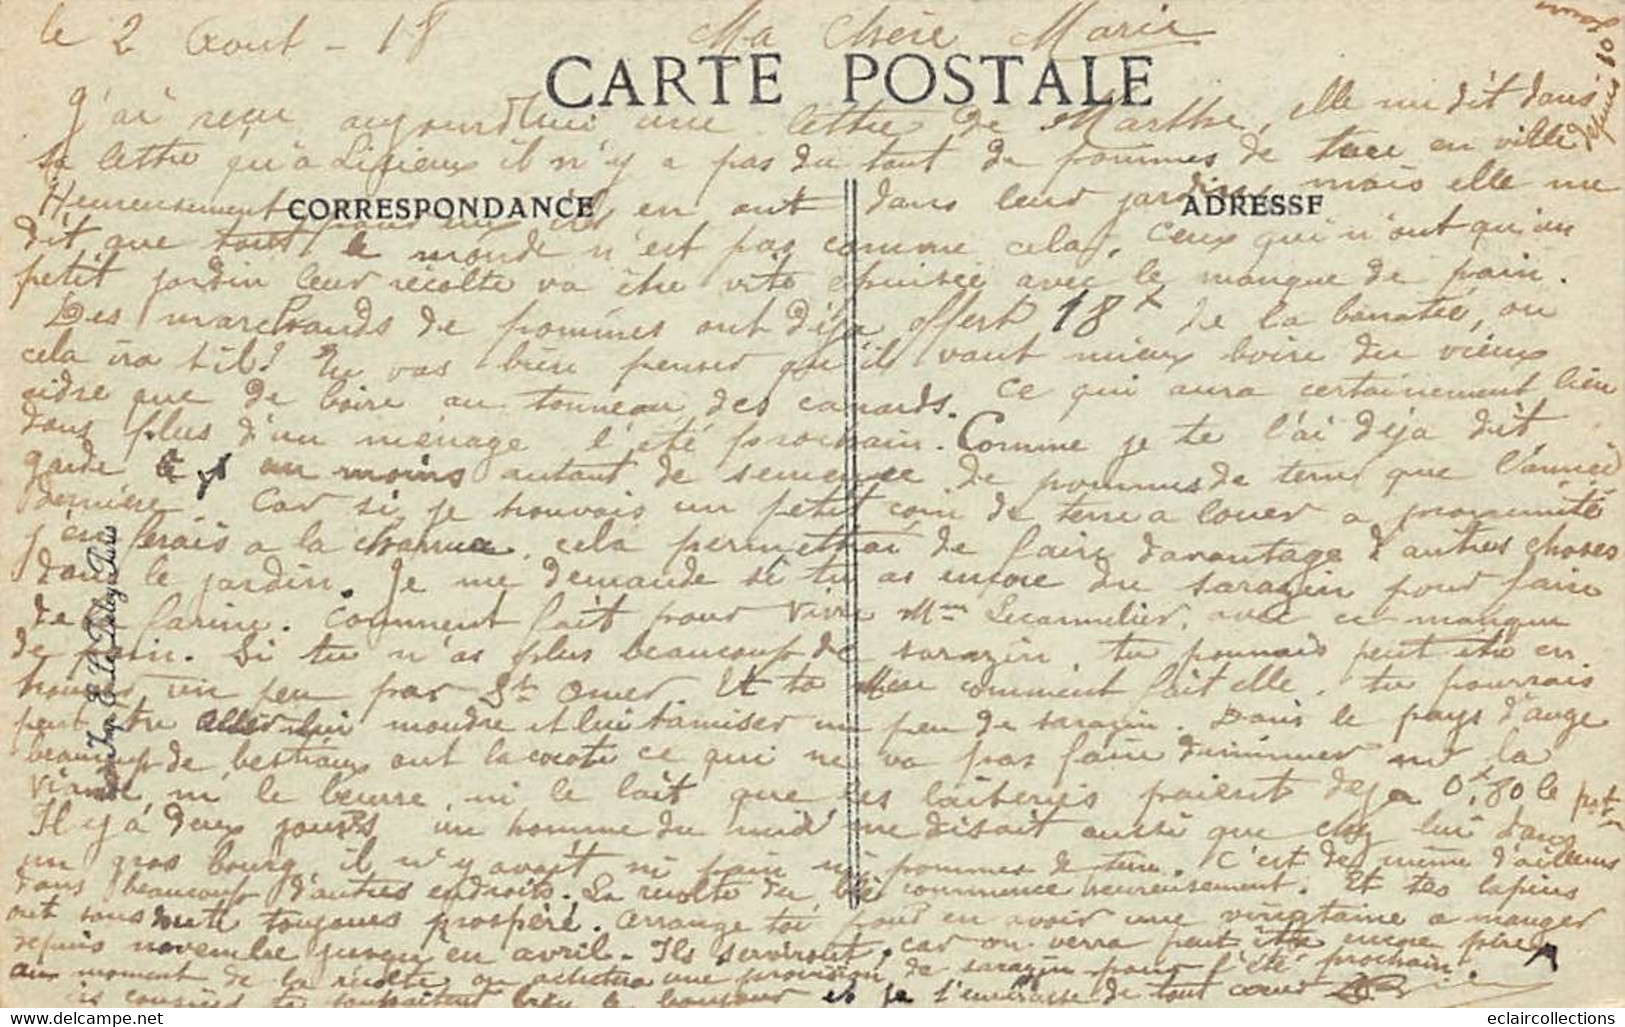 le 2 Aout - 18 Ma Chère Marie
CARTE POSTALE
J'ai reçu aujourd'hui une lettre de Marthe, elle me dit dans
sa lettre qu'à Lisieux il n'y a pas du tout de pommes de terre en ville depuis 10 jours
Heureusement pour eux ils en ont dans leur jardin, mais elle me
CORRESPONDANCE
ADRESSE
dit que tout le monde n'est pas comme cela. Ceux qui n'ont qu'un
petit jardin leur récolte va être vite épuisée avec le manque de pain.
Des marchands de pommes ont déjà offert 18f de la baratée, ou
cela ira t-il? Tu vas bien penser qu'il vaut mieux boire du vieux
cidre que de boire au tonneau des canards. Ce qui aura certainement lieu
dans plus d'un ménage l'été prochain. Comme je te l'ai déjà dit,
garde au moins autant de semence de pommes de terre que l'année
dernière. Car si je trouvais un petit coin de terre a louer a proximité
j'en ferais a la charrue, cela permettrai de faire davantage d'autres choses
dans le jardin. Je me demande si tu as encore du sarazin pour faire
de la farine. Comment fait pour vivre Mme Lecarmelier, avec ce manque
de pain. Si tu n'as plus beaucoup de sarazin, tu pourrais peut être en
trouver un peu par St Omer. Et ta Mère comment fait elle. tu pourrais
peut être aller lui moudre et lui tamiser un peu de sarazin. Dans le pays d'auge
beaucoup de bestiaux ont la cocote ce qui ne va pas faire diminuer ni la
viande, ni le beurre, ni le lait que les laiteries paient deja 0f,80 le pot
Il y a deux jours un homme du midi me disait aussi que chez lui dans
un gros bourg il n'y avait ni pain ni pommes de terre. C'est de même d'ailleurs
dans beaucoup d'autres endroits. La recolte du blé commence heureusement. Et tes lapins
ont sans doute toujours prospéré. Arrange toi pour en avoir une vingtaine a manger
depuis novembre jusqu'en avril. Ils serviront, car on verra peut être encore pire
au moment de la récolte on achetera une provision de sarazin pour l'été prochain.
cousins te souhaitent bien le bonjour et je t'embrasse de tout cœur
eclaircollections